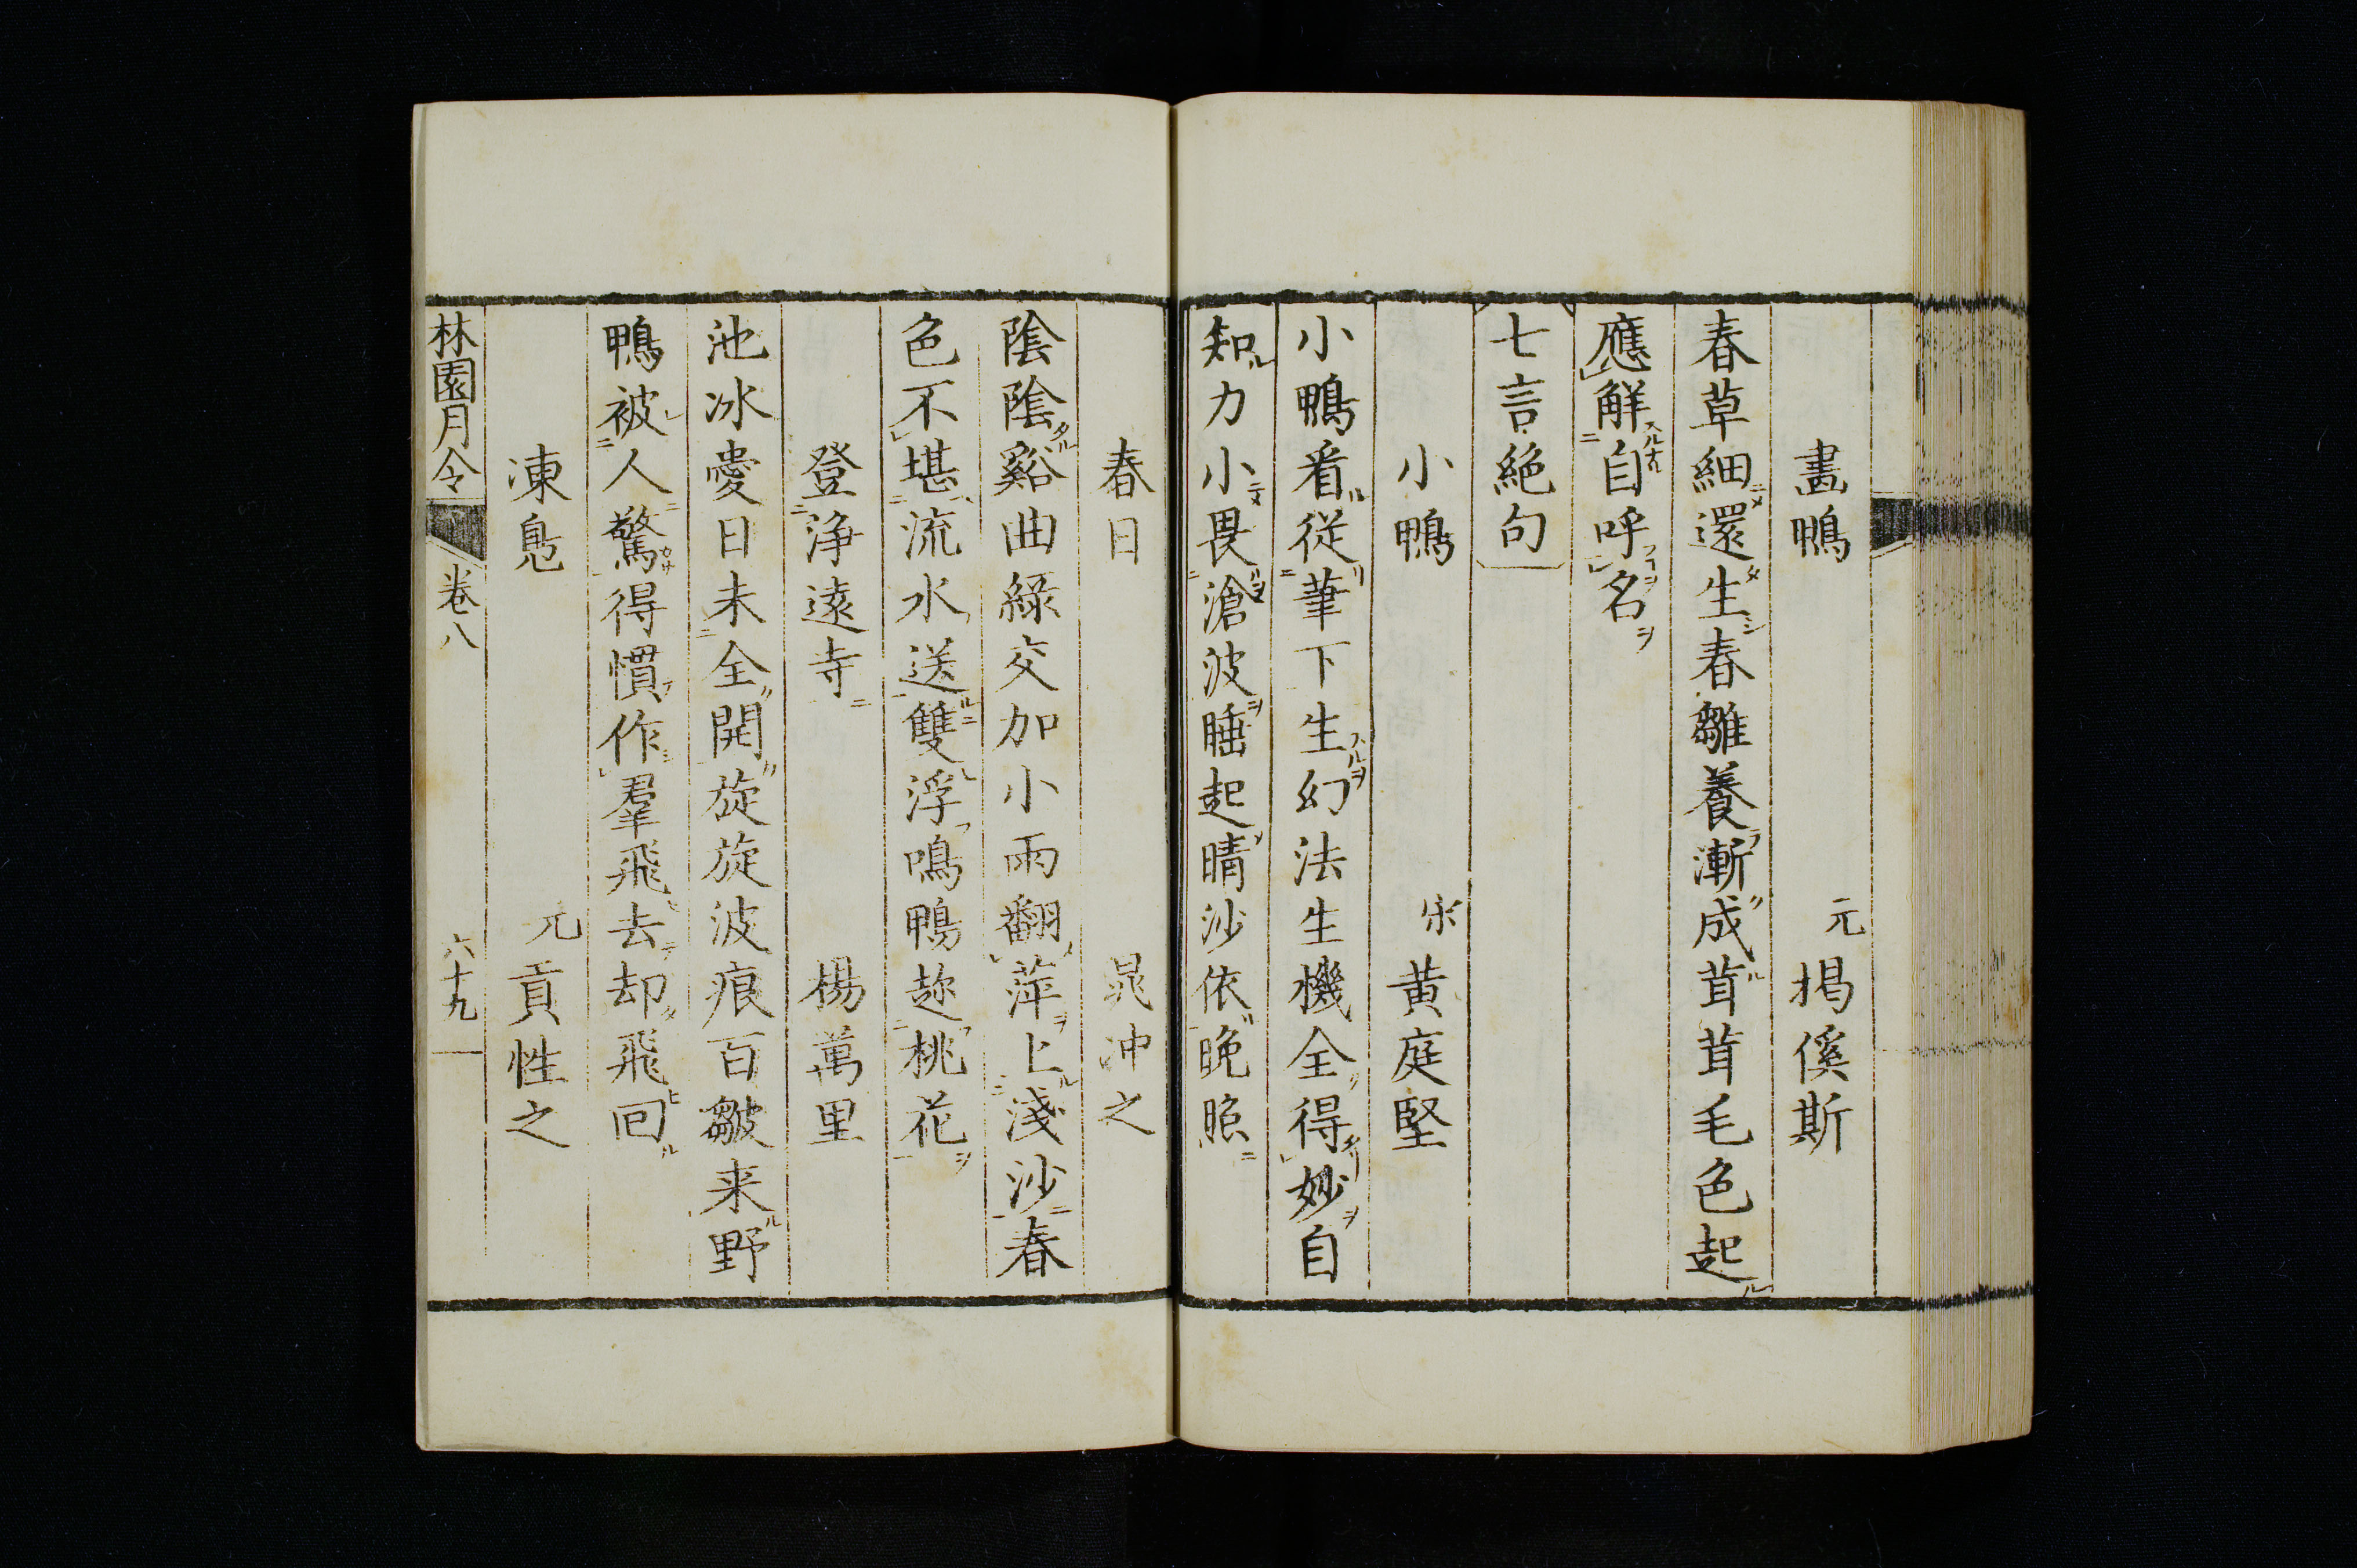 畫鴨　元 揭傒斯
春草細還生春雛養漸成茸茸毛色起
應解自呼名
七言絶句
小鴨　宋 黄庭堅
小鴨看從筆下生幻法生機全得妙自
知力小畏滄波睡起晴沙依晚照
春日　晁冲之
陰陰谿曲緑交加小雨翻萍上淺沙春
色不堪流水送雙浮鳴鴨趂桃花
登浄遠寺　楊萬里
池冰愛日未全開旋旋波痕百皺来野
鴨被人驚得慣作羣飛去却飛回
凍鳧　元 貢性之
林園月令　卷八　六十九